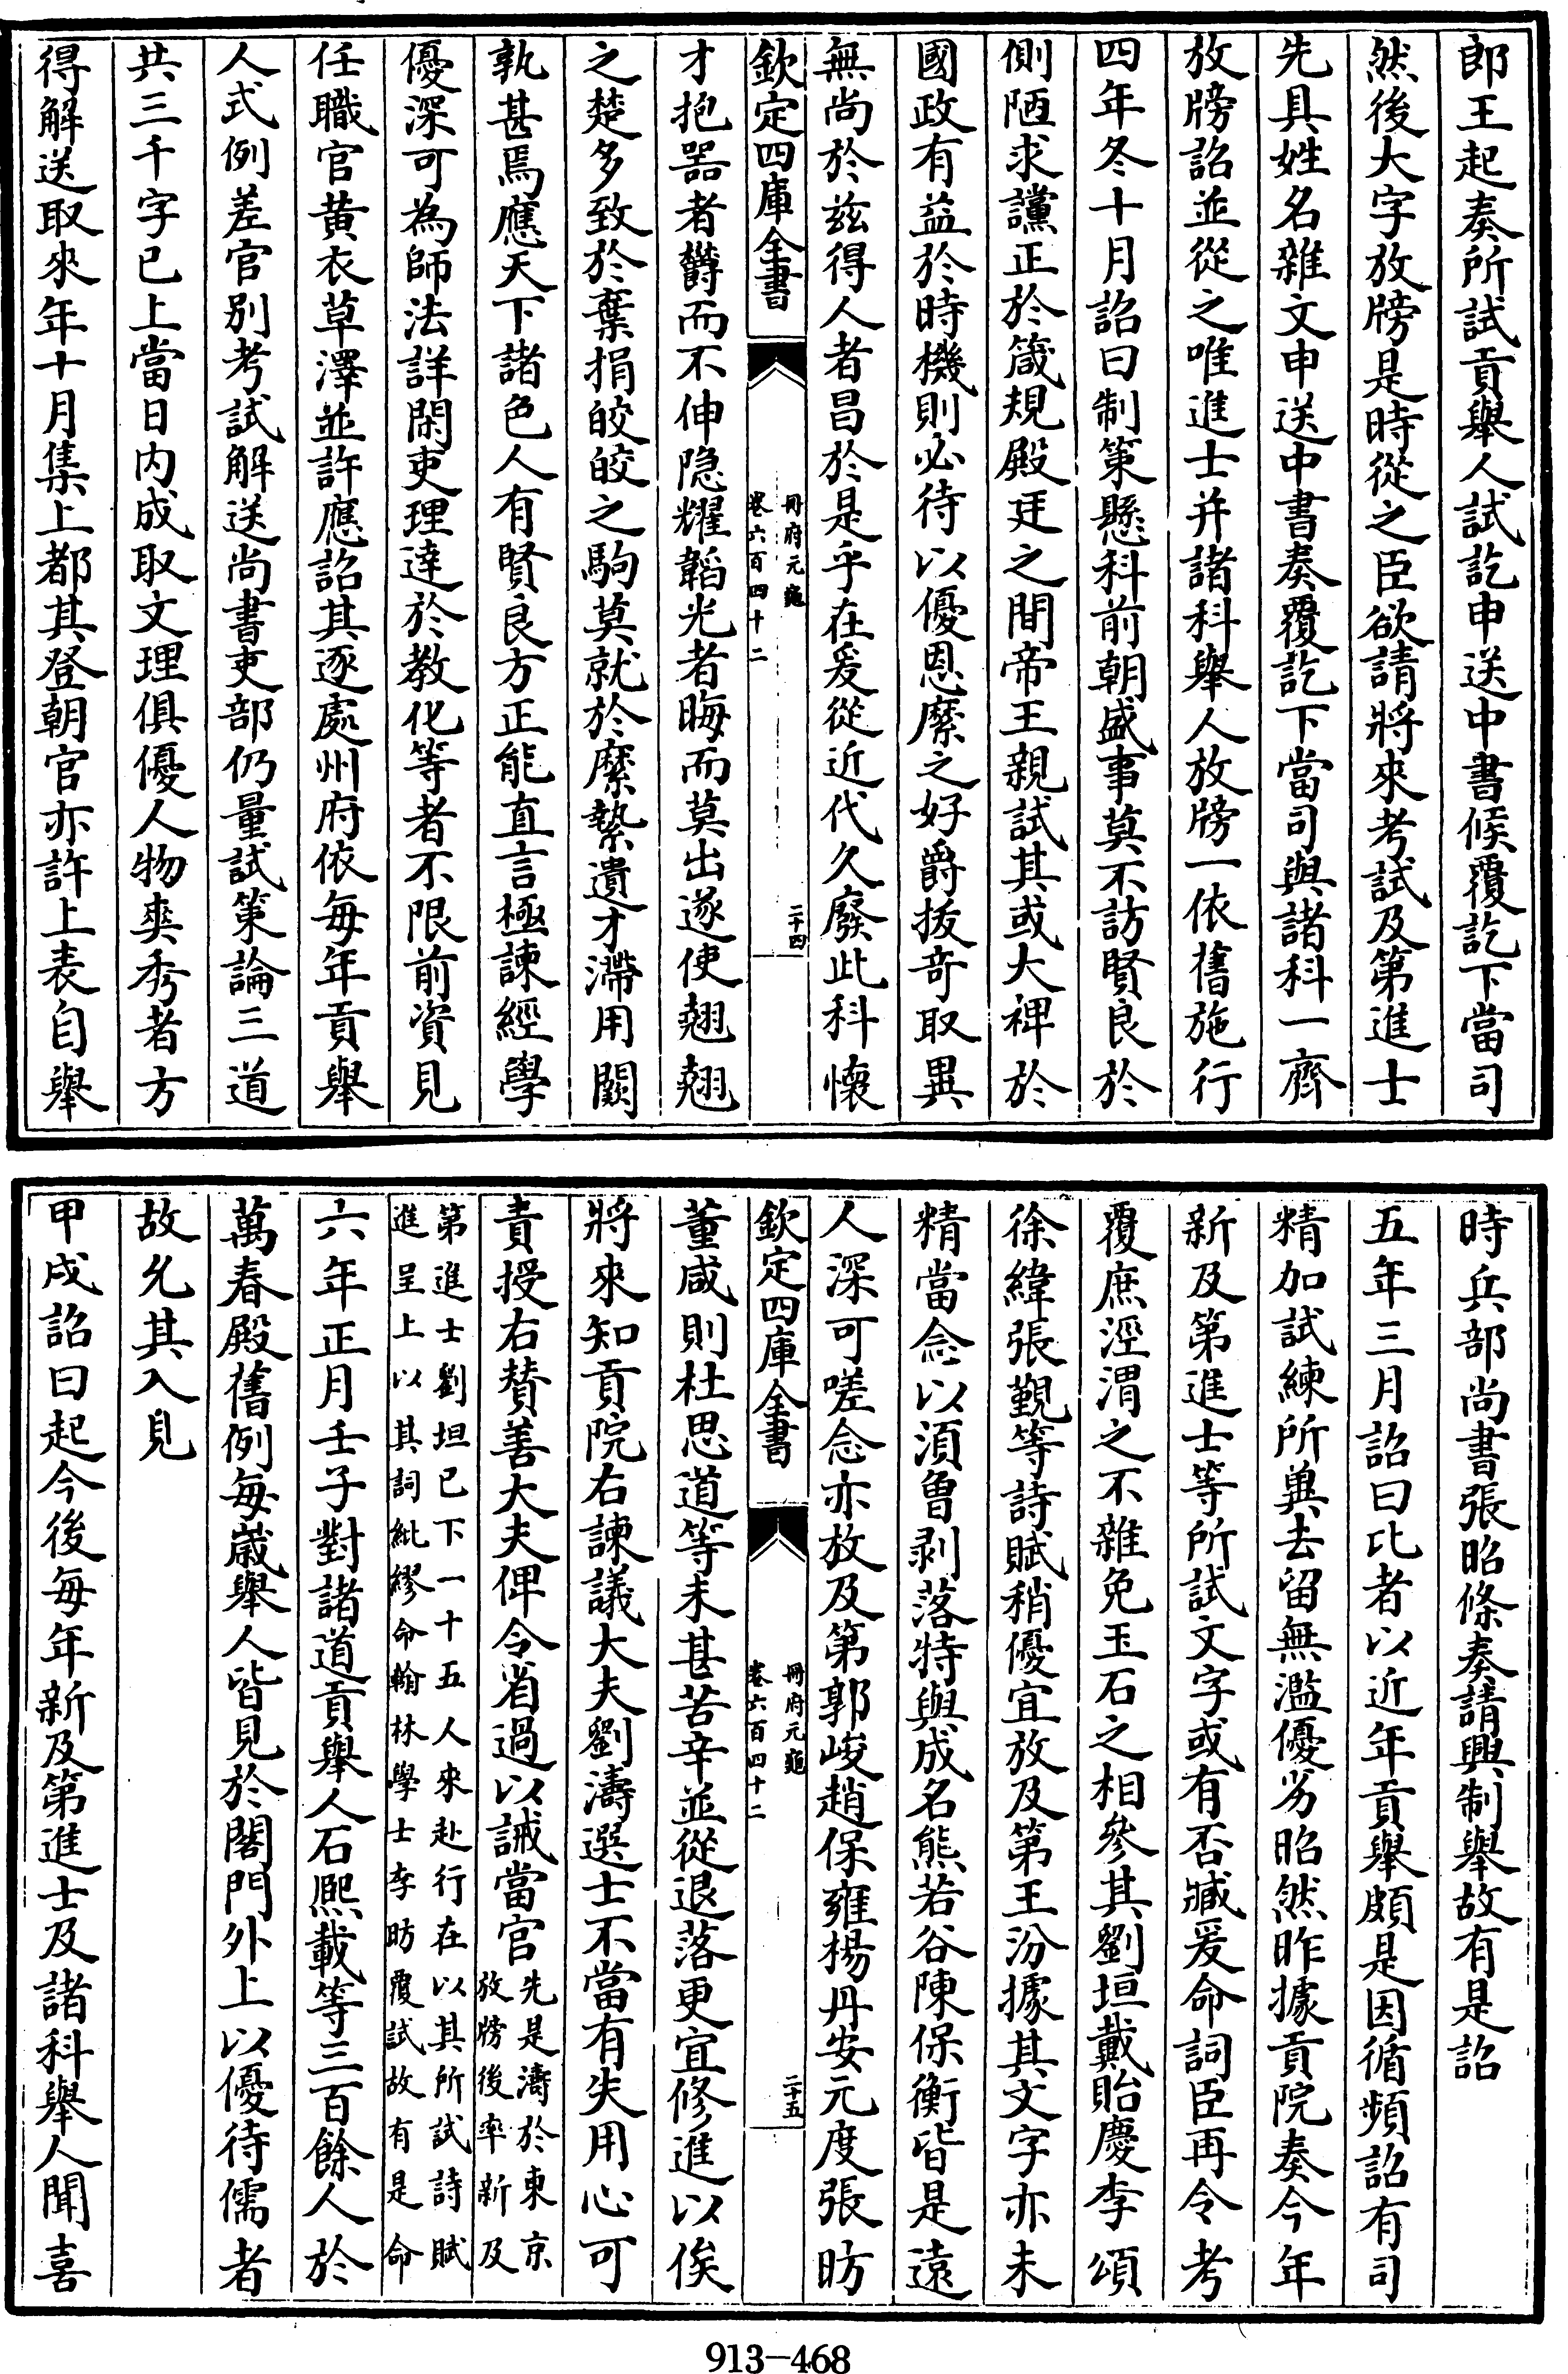 郎王起奏所試貢舉人試訖申送中書候覆訖下當司
然後大字放牓是時從之臣欲請將來考試及第進士
先具姓名雜文申送中書奏覆訖下當司與諸科一齊
放牓詔並從之唯進士并諸科舉人放牓一依舊施行
四年冬十月詔曰制策懸科前朝盛事莫不訪賢良於
側陋求讜正於箴規殿廷之間帝王親試其或大裨於
國政有益於時機則必待以優恩縻之好爵拔奇取異
無尚於兹得人者昌於是乎在爰從近代久廢此科懷
欽定四庫全書
冊府元龜
卷六百四十二
二十四
才抱器者鬱而不伸隐耀韜光者晦而莫出遂使翹翹
之楚多致於棄捐皎皎之駒莫就於縻縶遺才滯用闕
孰甚焉應天下諸色人有賢良方正能直言極諫經學
優深可為師法詳閑吏理達於教化等者不限前資見
任職官黄衣草澤並許應詔其逐處州府依每年貢舉
人式例差官别考試解送尚書吏部仍量試策論三道
共三千字已上當日内成取文理俱優人物爽秀者方
得解送取來年十月集上都其登朝官亦許上表自舉
時兵部尚書張昭條奏請興制舉故有是詔
五年三月詔曰比者以近年貢舉頗是因循頻詔有司
精加試練所兾去留無濫優劣昭然昨據貢院奏今年
新及第進士等所試文字或有否臧爰命詞臣再令考
覆庶涇渭之不雜免玉石之相參其劉垣戴貽慶李頌
徐緯張覲等詩賦稍優宜放及第王汾據其文字亦未
精當念以湏曽剥落特與成名熊若谷陳保衡皆是遠
人深可嗟念亦放及第郭峻趙保雍楊丹安元度張昉
欽定四庫全書
冊府元龜
卷六百四十二
二十五
董咸則杜思道等未甚苦辛並從退落更宜修進以俟
將來知貢院右諫議大夫劉濤選士不當有失用心可
責授右贊善大夫俾令省過以誡當官先是濤於東京
放牓後率新及
第進士劉坦已下一十五人來赴行在以其所試詩賦
進呈上以其詞紕繆命翰林學士李昉覆試故有是命
六年正月壬子對諸道貢舉人石熙載等三百餘人於
萬春殿舊例每歲舉人皆見於閤門外上以優待儒者
故允其入見
甲戌詔曰起今後每年新及第進士及諸科舉人聞喜
913-468